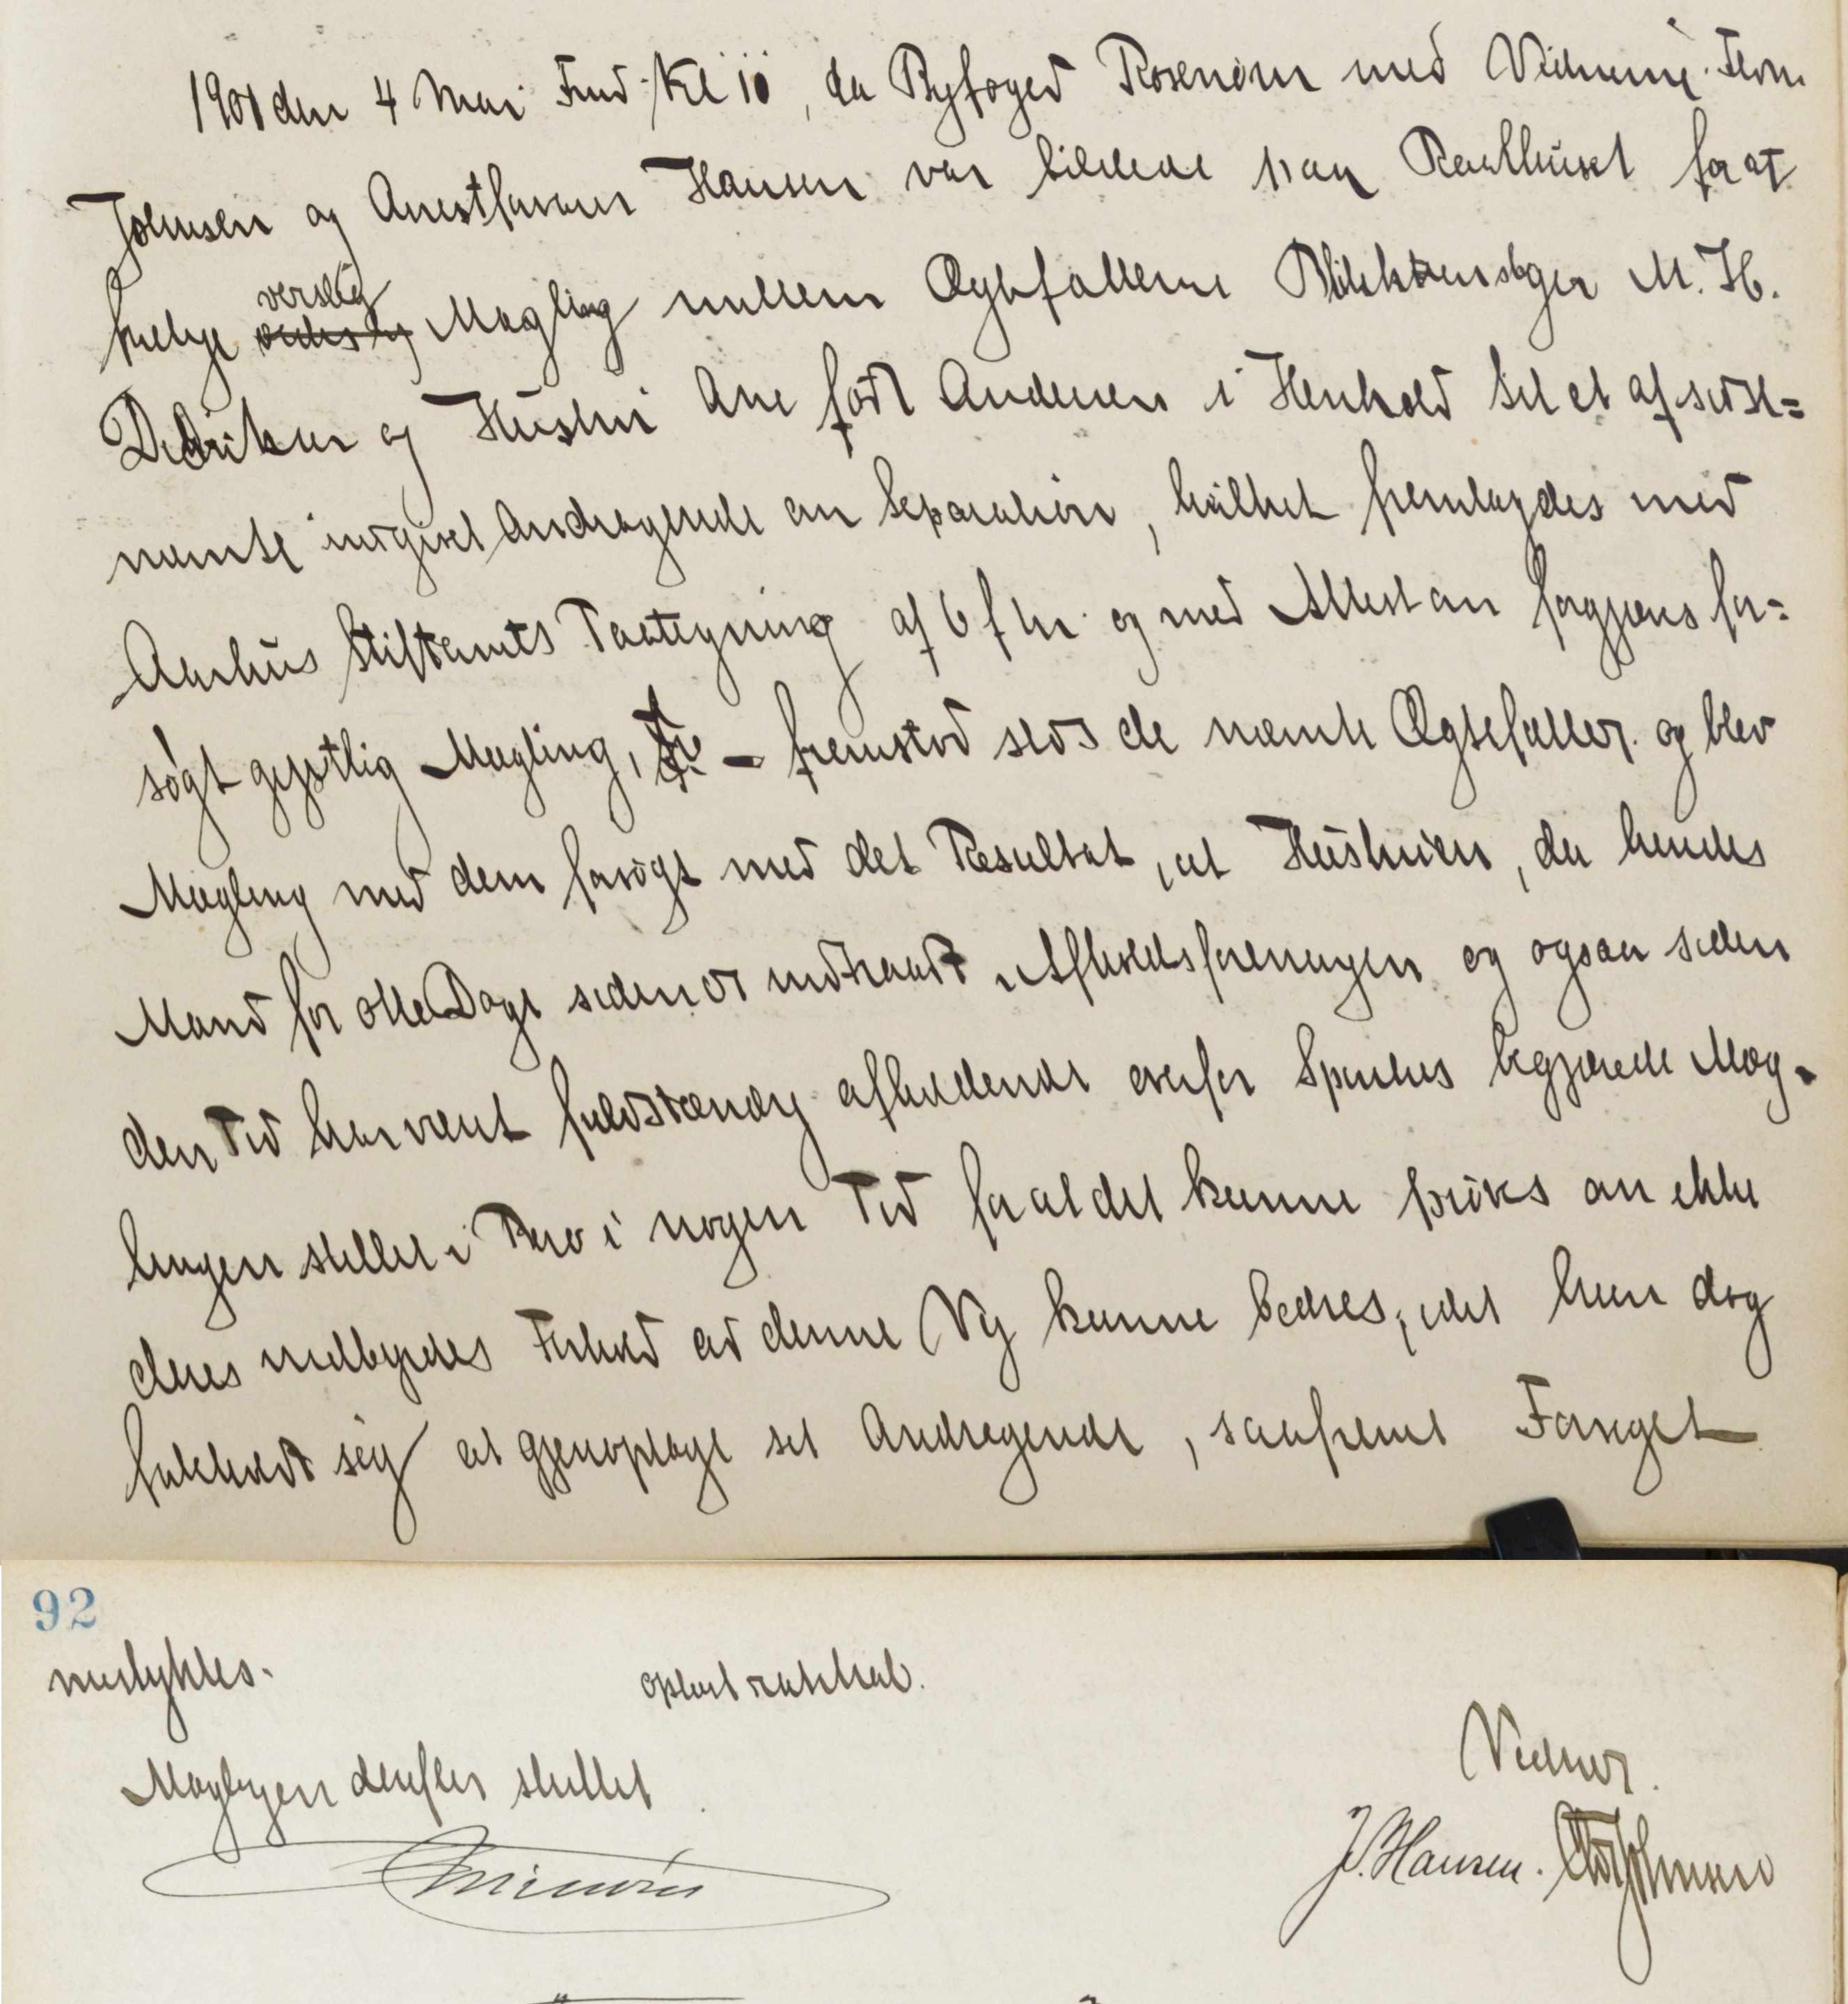 1901 den 4 Mai Fmd Kl 10, da Byfoged Rosenörn med Vidnerne
Johnsen og Arrestforvarer Hansen var tilstede paa Raadhuset for at
foretage verdslig Mægling mellem Ægtefællerne Blikkenslager M. H.
Didriksen og Hustru Ane født Andersen i Henhold til et af sidst=
nævnte indgivet Andragende om Separation, hvilket fremlagdes med
Aarhus Stiftamts Paategning af 6 f M. og med Attest om forgjæves for=
søgt gejstlig Mægling, – fremstod disse nævnte Ægtefæller og blev
Mægling med dem forsøgt med det Resultat, at Hustruen, da hendes
Mand for otte Dage siden er indtraadt i Afholdsforeningen og ogsaa siden
den Tid har været fuldstændig afholdende overfor Spiritus begjærede Mæg=
lingen stillet i Bero i nogen Tid for at det kunne prøves om ikke
deres indbyrdes Forhold ad denne Vej kunne bedres, idet hun dog
forbeholdt sig at gjenoptage sit Andragende, saafremt Forsøget
92
mislykkes.
oplæst vedtaget.
Mæglingen derefter sluttet
Vidner.
J. Hansen. Johnsen